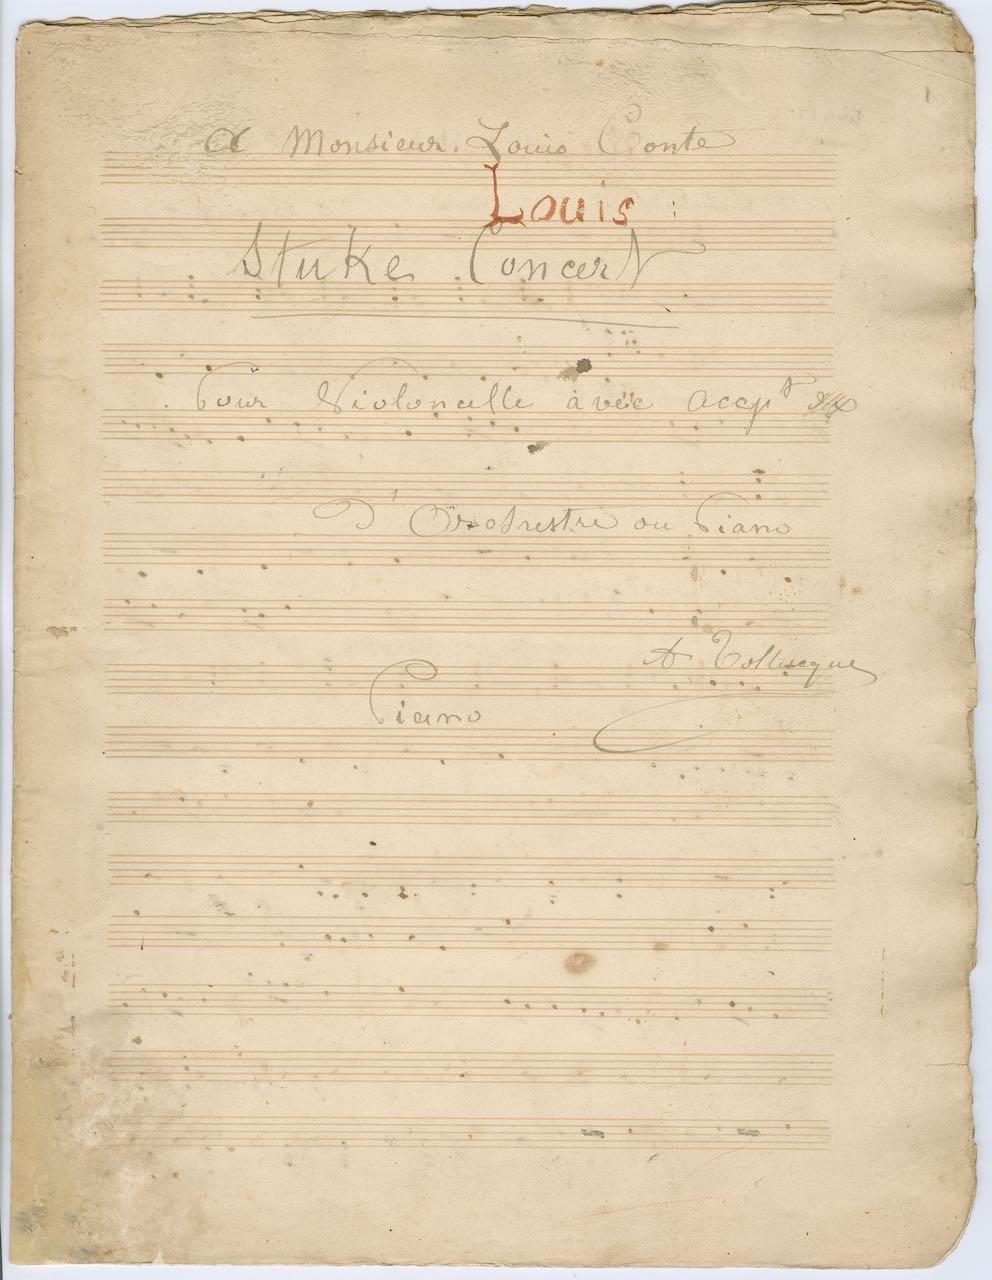 1
A Monsieur Louis Conte
Louis :
Stuke Concert
Pour Violoncelle avec accpt
D'Orchestre ou Piano
A Tolbecque
Piano